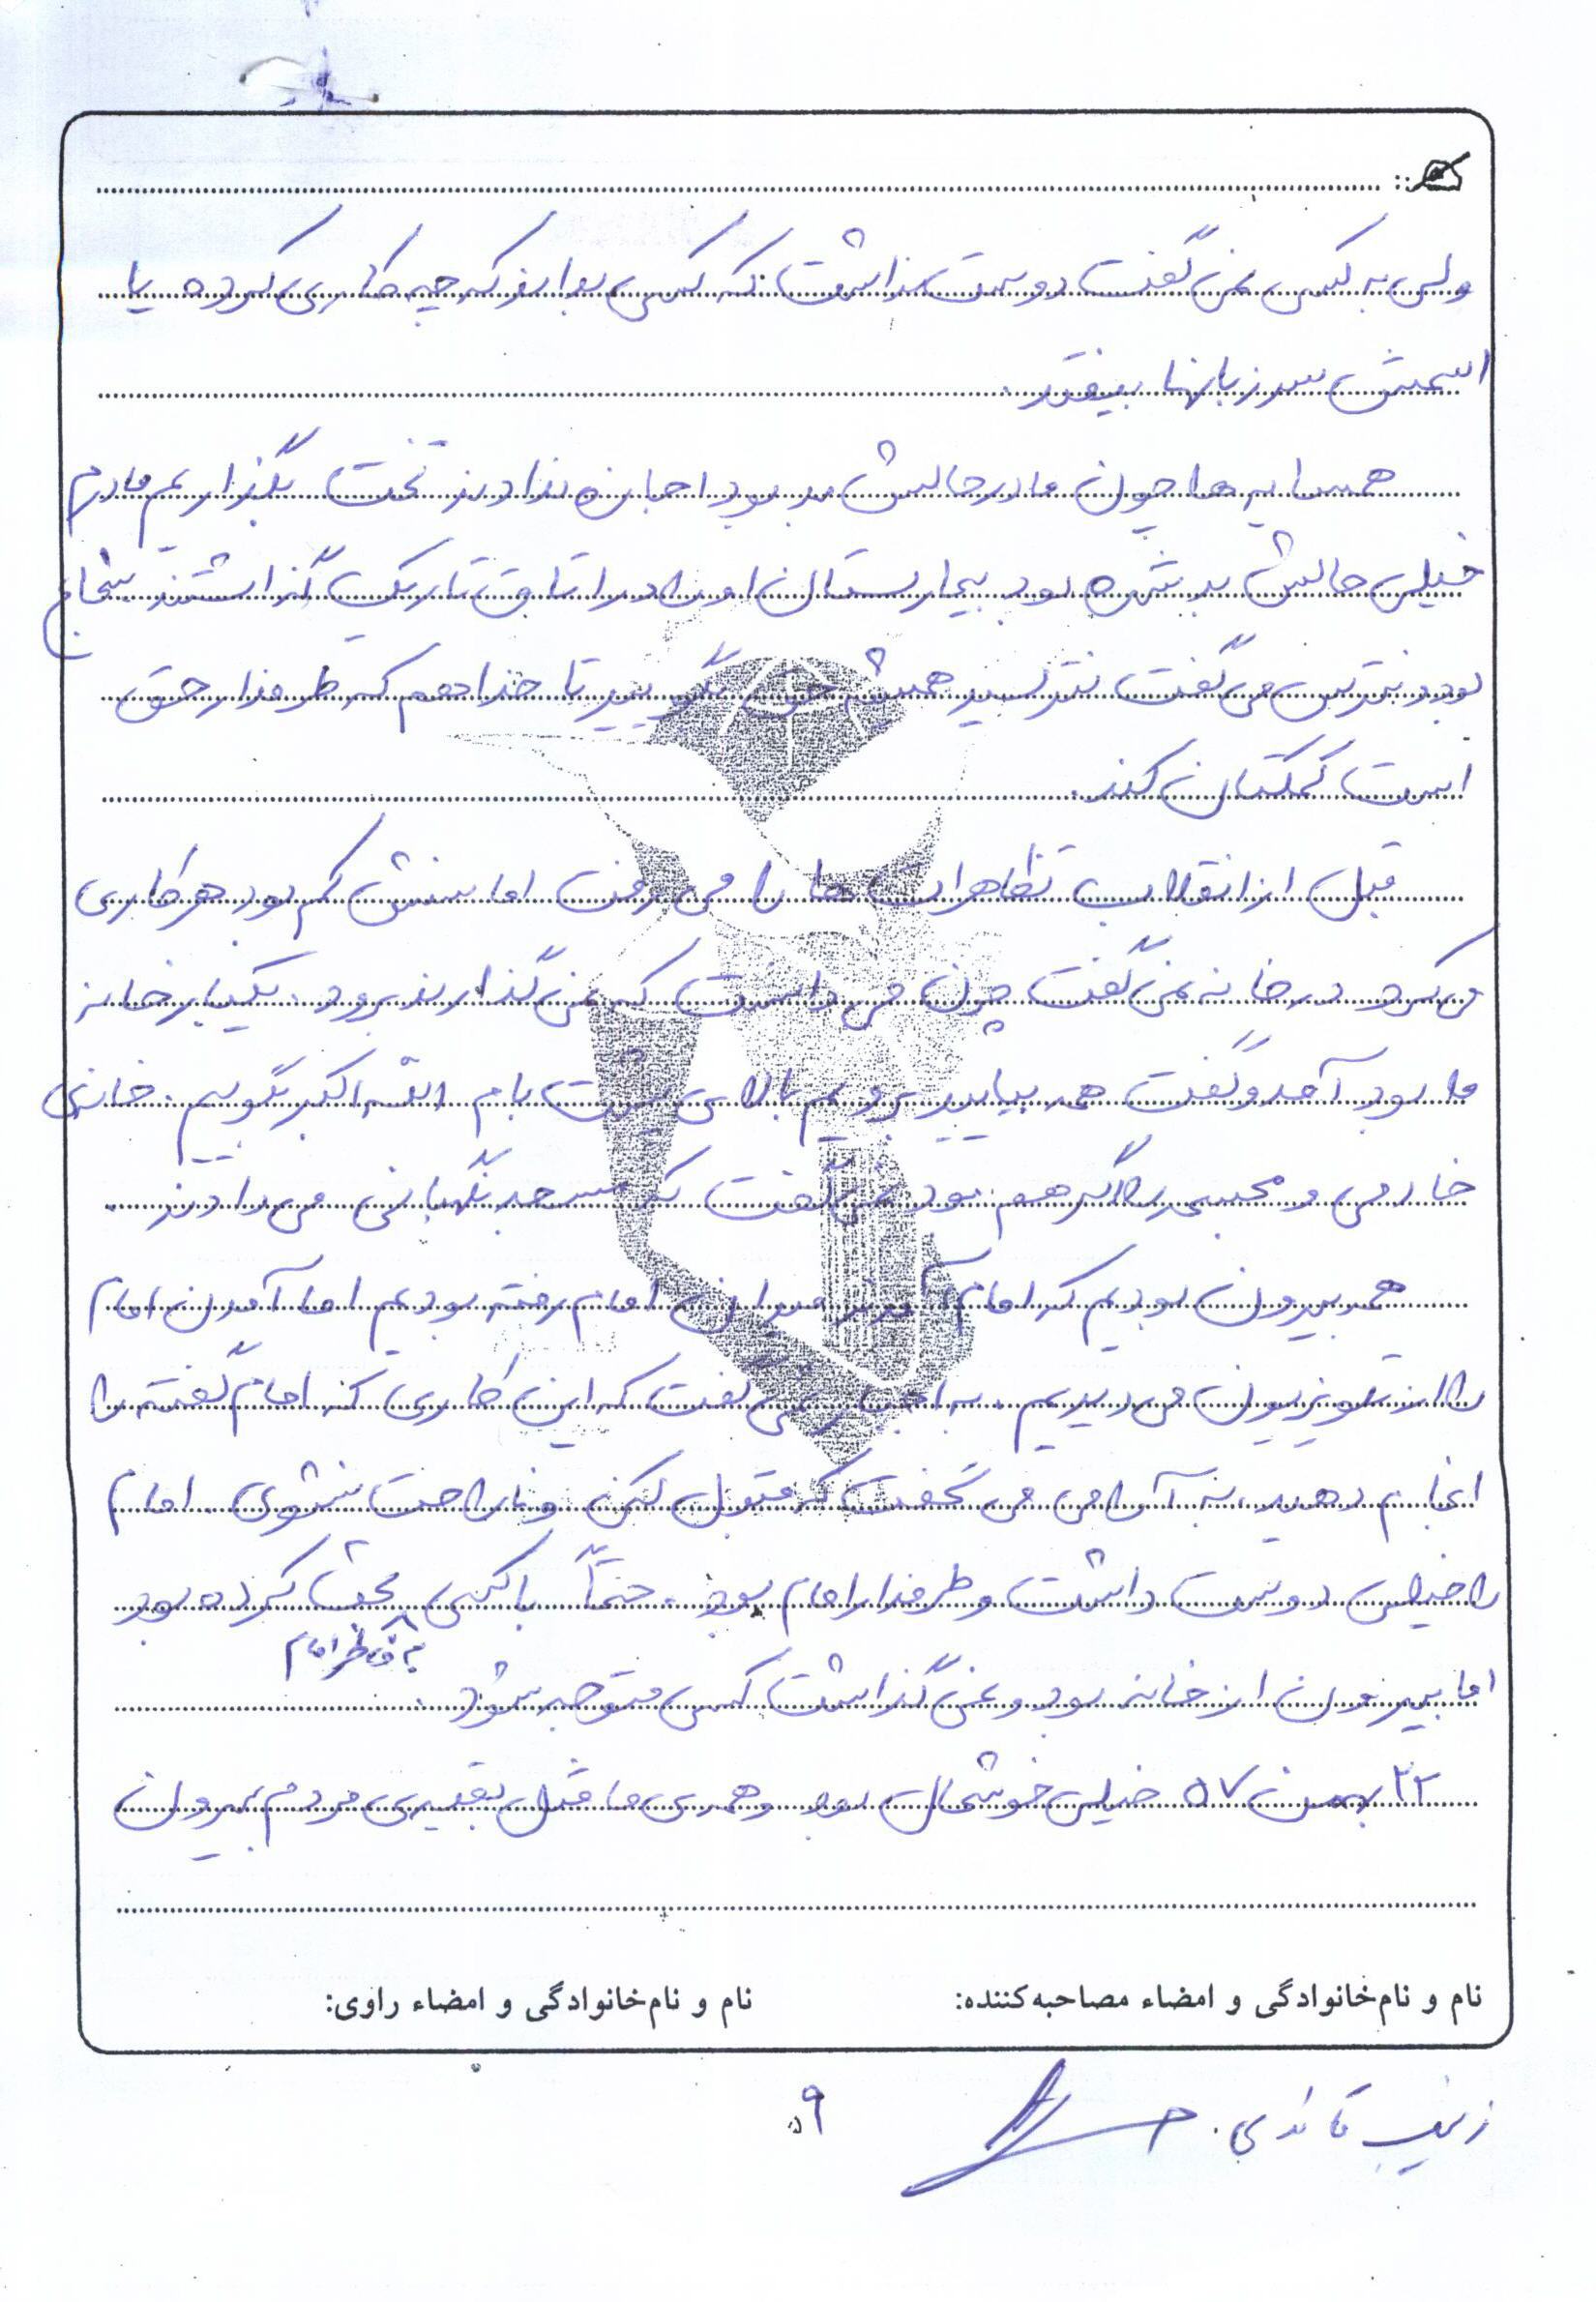 ولی به کسی نمی گفت دوست نداشت که کسی بداند که چه کاری کرده یا
اسمش سر زبانها بیفتد.
همسایه ها چون مادر حالش بد بود اجازه ندادند تخت بگذاریم مادرم
خیلی حالش بد شده بود بیمارستان او را در اتاق تاریک گذاشتند شجاع
بود و نترس می گفت نترسید همیشه حق بگویید تا خدا هم که طرفدار حق
است کمکتان کند.
قبل از انقلاب تظاهرات ها را می رفت اما سنش کم بود هر کاری
می کرد در خانه نمی گفت چون می دانست که نمی گذارند برود. یکبار خانه
ما بود آمد و گفت همه بیایید برویم بالای پشت بام الله اکبر بگوییم. خانه ی
خادمی و مجسمه اگر هم بود نمی گفت که مسجد نگهبانی می دادند.
همه بیرون بودیم که امام آمد در میدان امام رفته بودیم اما آمدن امام
را از تلویزیون می دیدیم. به اجبار نمی گفت که این کاری که امام گفته را
انجام دهید، به آرامی می گفت که قبول کن و ناراحت نشوی. امام
را خیلی دوست داشت و طرفدار امام بود. حتماً با کسی بحث کرده بود
به خاطر امام
اما بیرون از خانه بود و نمی گذاشت کسی متوجه شود.
۲۲ بهمن ۵۷ خیلی خوشحال بود و همه ی ما مثل بقیه ی مردم بیرون
نام و نام‌خانوادگی و امضاء مصاحبه‌کننده:
نام و نام‌خانوادگی و امضاء راوی:
زینب قائدی.
۹